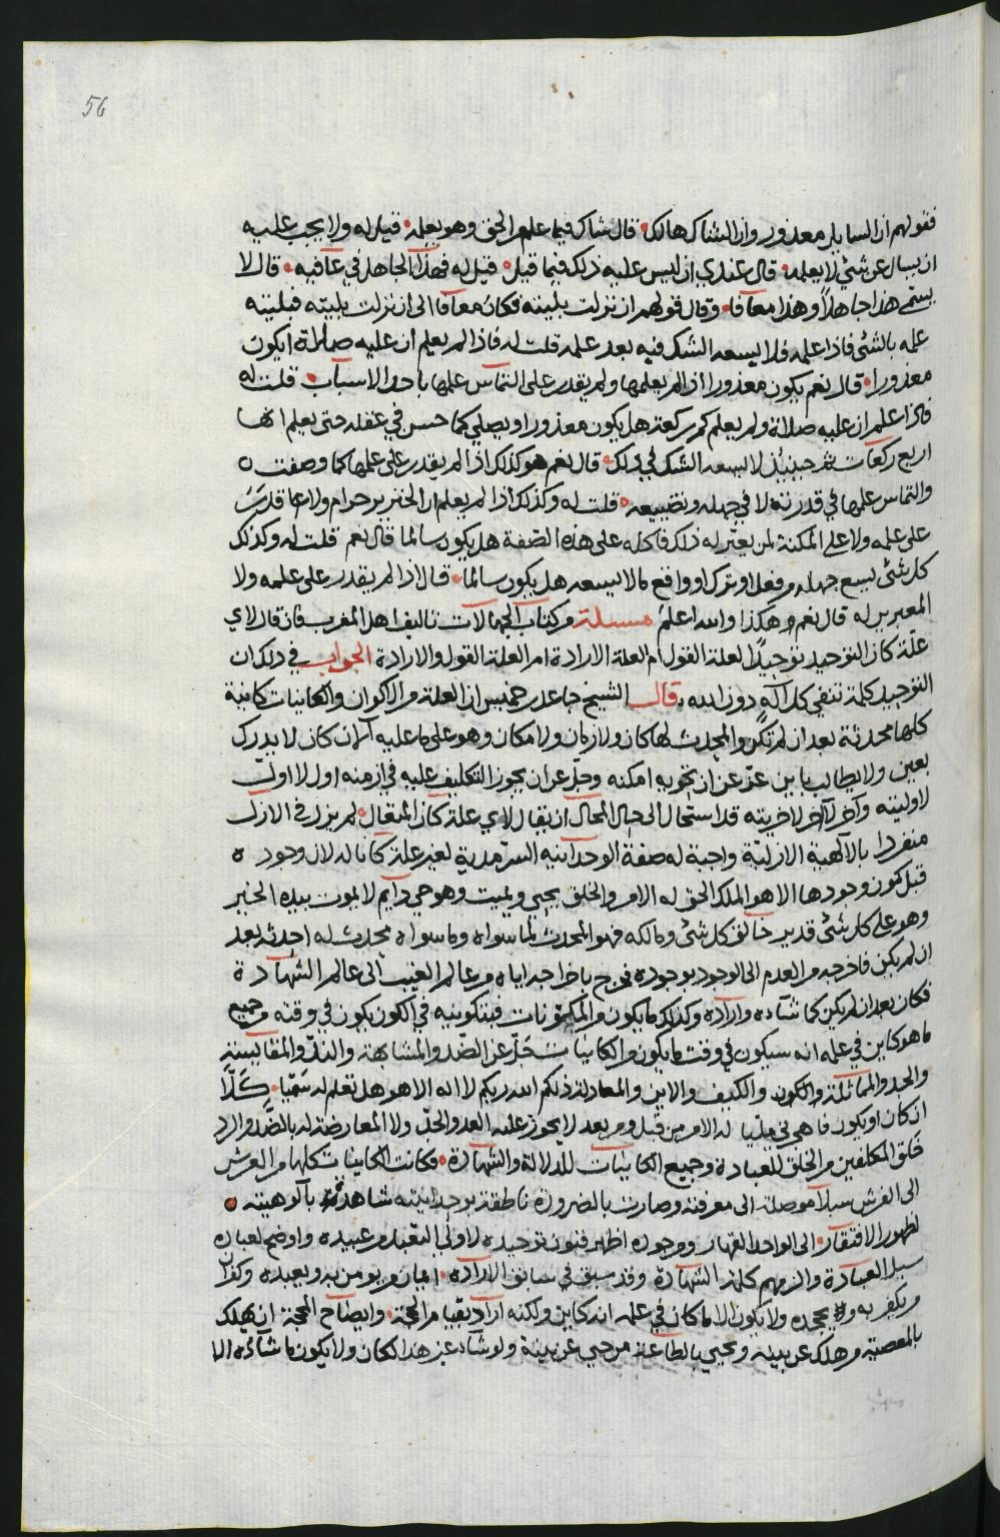 56
فقولهم ان السايل معذور وان الشاك هالك قال شاك فيما علم الحق وهو يعلمه قيل له ولا يجب عليه
ان يسال عن شئ لا يعلمه قال عندي ان ليس عليه ذلك فيما قيل قيل له فهذا الجاهل في عافيه قال لا
يسمى هذا جاهلاً وهذا معافا وقال قولهم ان نزلت بليته فكانه معافا الى ان نزلت بليته فبليته
علمه بالشئ فاذا علمه فلا يسعه الشك فيه بعد علمه قلت له فاذا لم يعلم ان عليه صلاة ايكون
معذورا قال نعم يكون معذورا اذا لم يعلمها ولم يقدر على التماس علمها باحد الاسباب قلت له
فاذا علم ان عليه صلاة ولم يعلم كم ركعة هل يكون معذورا ويصلي كما حسن في عقله حتى يعلم انها
اربع ركعات ثم حينيذ لا يسعه الشك في ذلك قال نعم هو كذلك اذا لم يقدر على علمها كما وصفت
والتماس علمها في قدرته لا في جهله وتضييعه قلت له وكذلك اذا لم يعلم ان الخنزير حرام ولا
على علمه ولا على المكنة لمن يعبر له ذلك فاكله على هذه الصفة هل يكون سالما قال نعم قلت له وكذلك
كل شئ يسع جهله من فعل او ترك او واقع ما لا يسعه هل يكون سالما قال اذا لم يقدر على علمه ولا
المعبرين له قال نعم وهكذا والله اعلم مسئلة من كتاب الجهالات تاليف اهل المغرب فان قال لاي
علة كان التوحيد توحيدا لعلة القول ام لعلة الارادة ام لعلة القول والارادة الجواب في ذلك ان
التوحيد كلمة تنفي كل اله دون الله قال الشيخ جاعد بن خميس ان العلة من الاكوان والكاينات كاينة
كلها محدثة بعد ان لم تكن والمحدث لها كان ولا زمان ولا مكان وهو على ما عليه الآن كان لا يدرك
بعين ولا يطالب باين عز عن ان تحويه امكنه وجل عن ان يجوز التكليف عليه في ازمنه اول لا اول
لاوليته وآخر لا آخر لاخريته قد استحال الى حال المحال ان يقال لاي علة كان لم يزل في الازل
منفردا بالآلهية الازلية واجبة له صفة الوحدانيه السرمدية لغير علة كانا له لان وجود
قبل كون وجودها الا هو الملك الحق له الامر والخلق يحيي ويميت وهو حي دايم لا يموت بيده الخير
وهو على كل شئ قدير خالق كل شئ ومالكه فهو المحدث لما سواه وما سواه محدث له احدثه بعد
ان لم يكن فاخرجه من العدم الى الوجود بوجوده فخرج باخراجه اياه من عالم الغيب الى عالم الشهادة
فكان بعد ان لم يكن كما شآءه واراده وكذلك ما يكون من المكونات فبتكوينه في الكون يكون في وقته وجميع
ما هو كاين في علمه انه سيكون في وقت ما يكون من الكاينات جل عن الضد والمشابهة والند والمقايسة
والحد والمماثلة والكون والكيف والاين والمعادلة ذلكم الله ربكم لا اله الا هو هل تعلم له سميا كلا
ان كان او يكون له الامر من قبل ومن بعد لا يجوز عليه العد والحد ولا المعارضة له بالضد والرد
خلق المكلفين من الخلق للعبادة وجميع الكاينات للدلالة والشهادة فكانت الكاينات كلها من العرش
الى الفرش سبلا موصلة الى معرفته وصارت بالضرورة ناطقة بوحدانيته شاهدة بآلوهيته
لظهور الافتقار الى الواحد القهار ووجوده اظهر فنون توحيده لاولي التعبد من عبيده واوضح لعباده
سبل العبادة والزمهم كلمة الشهادة وقد سبق في سابق الارادة ايمان من يومن به ويعبده وكفران
من يكفر به ويجحده ولا يكون الا ما كان في علمه انه كاين ولكنه اراد بقيام الحجة وايضاح المحجة ان يهلك
بالمعصية من هلك عن بينه ويحيي بالطاعة من حي عن بينة ولو شآء غير هذا لكان ولا يكون ما شآءه الا